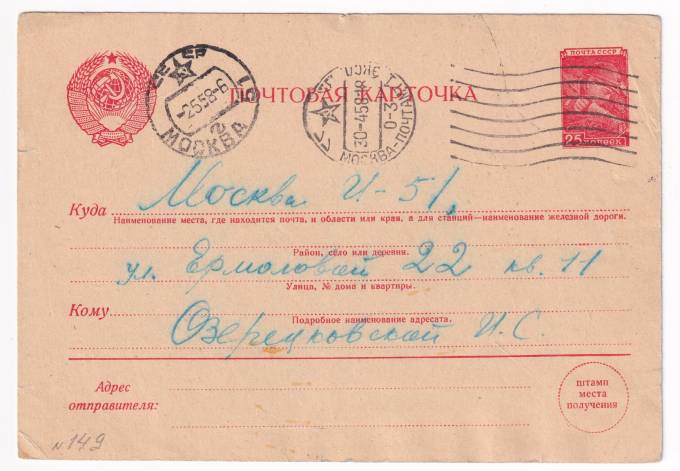 ПОЧТА СССР
25 КОПЕЕК
ПОЧТОВАЯ КАРТОЧКА
-2558-6
МОСКВА
30-458-18
МОСКВА-ПОЧТАМТ
Куда Москва И-51,
Наименование места, где находится почта, и области или края, а для станций—наименование железной дороги.
Район, село или деревня.
ул. Ермоловой 22 кв. 11
Улица, № дома и квартиры.
Кому
Подробное наименование адресата.
Озерецковской И. С.
Адрес
отправителя:
штамп
места
получения
N 149